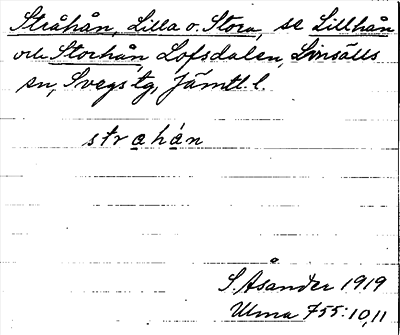 Stråhån, Lilla o. Stora, se Lillhån
och Storhån Lofsdalen, Linsälls
sn, Svegs tg, Jämtl. l.
strahán
S. Åsander 1919
Ulma 755:10,11